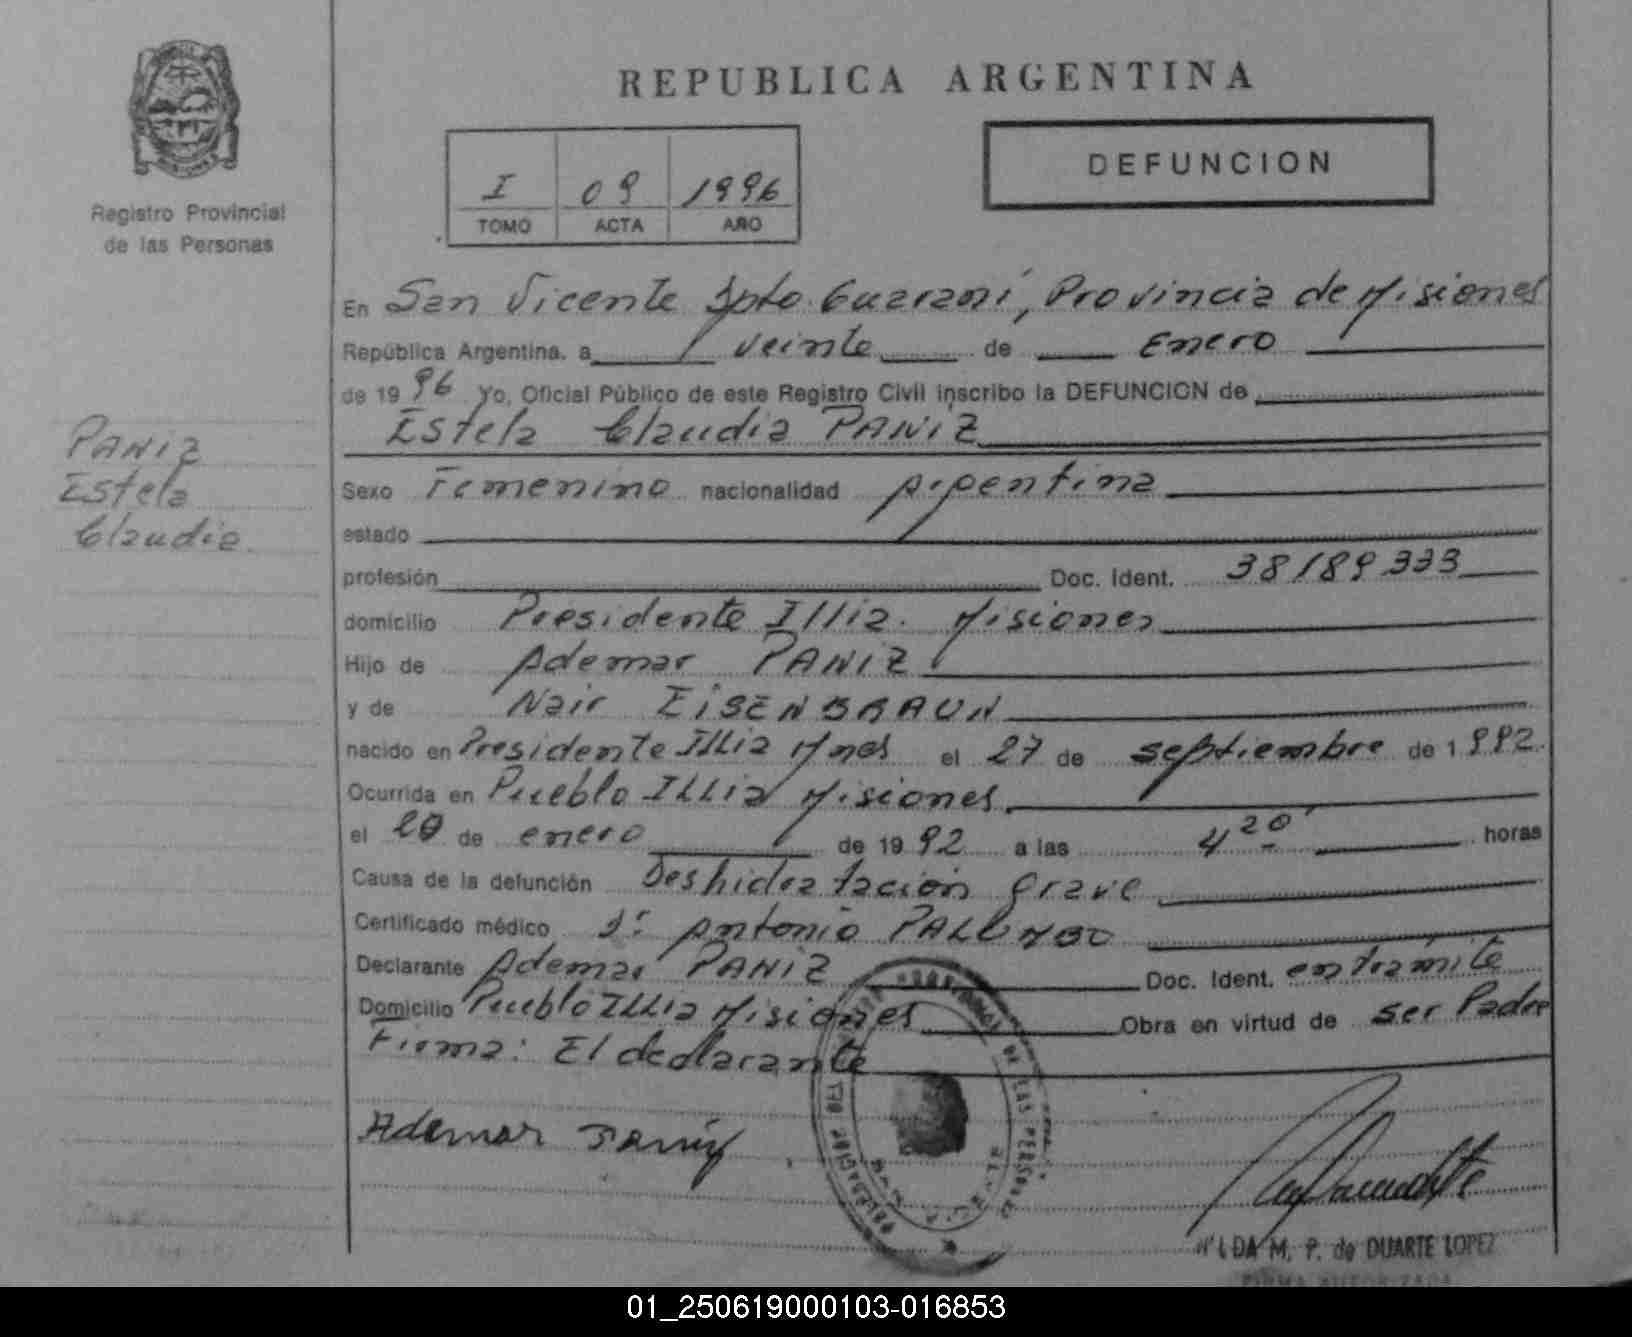 REPUBLICA ARGENTINA
DEFUNCION
I 09 1996
TOMO ACTA AÑO
Registro Provincial
de las Personas
En San Vicente Dpto. Guaraní, Provincia de Misiones
República Argentina, a veinte de Enero
de 1996 Yo, Oficial Público de este Registro Civil inscribo la DEFUNCION de
Estela Claudia PANIZ
PANIZ
Estela
Claudia.
Sexo Femenino nacionalidad Argentina
estado
profesión Doc. Ident. 38189333
domicilio Presidente Illia. Misiones
Hijo de Ademar PANIZ
y de Nair EISENBRAUN
nacido en Presidente Illia Mnes el 27 de septiembre de 1992.
Ocurrida en Pueblo Illia Misiones.
el 20 de enero de 1992 a las 4 20' horas
Causa de la defunción Deshidratación grave
Certificado médico Dr. Antonio
Declarante Ademar PANIZ Doc. Ident. en trámite
Domicilio Pueblo Illia Misiones Obra en virtud de ser Padre
Firma: El declarante
Ademar Paniz
DE LAS PERSONAS
M. P. de DUARTE LOPEZ
FIRMA AUTORIZADA
01_250619000103-016853